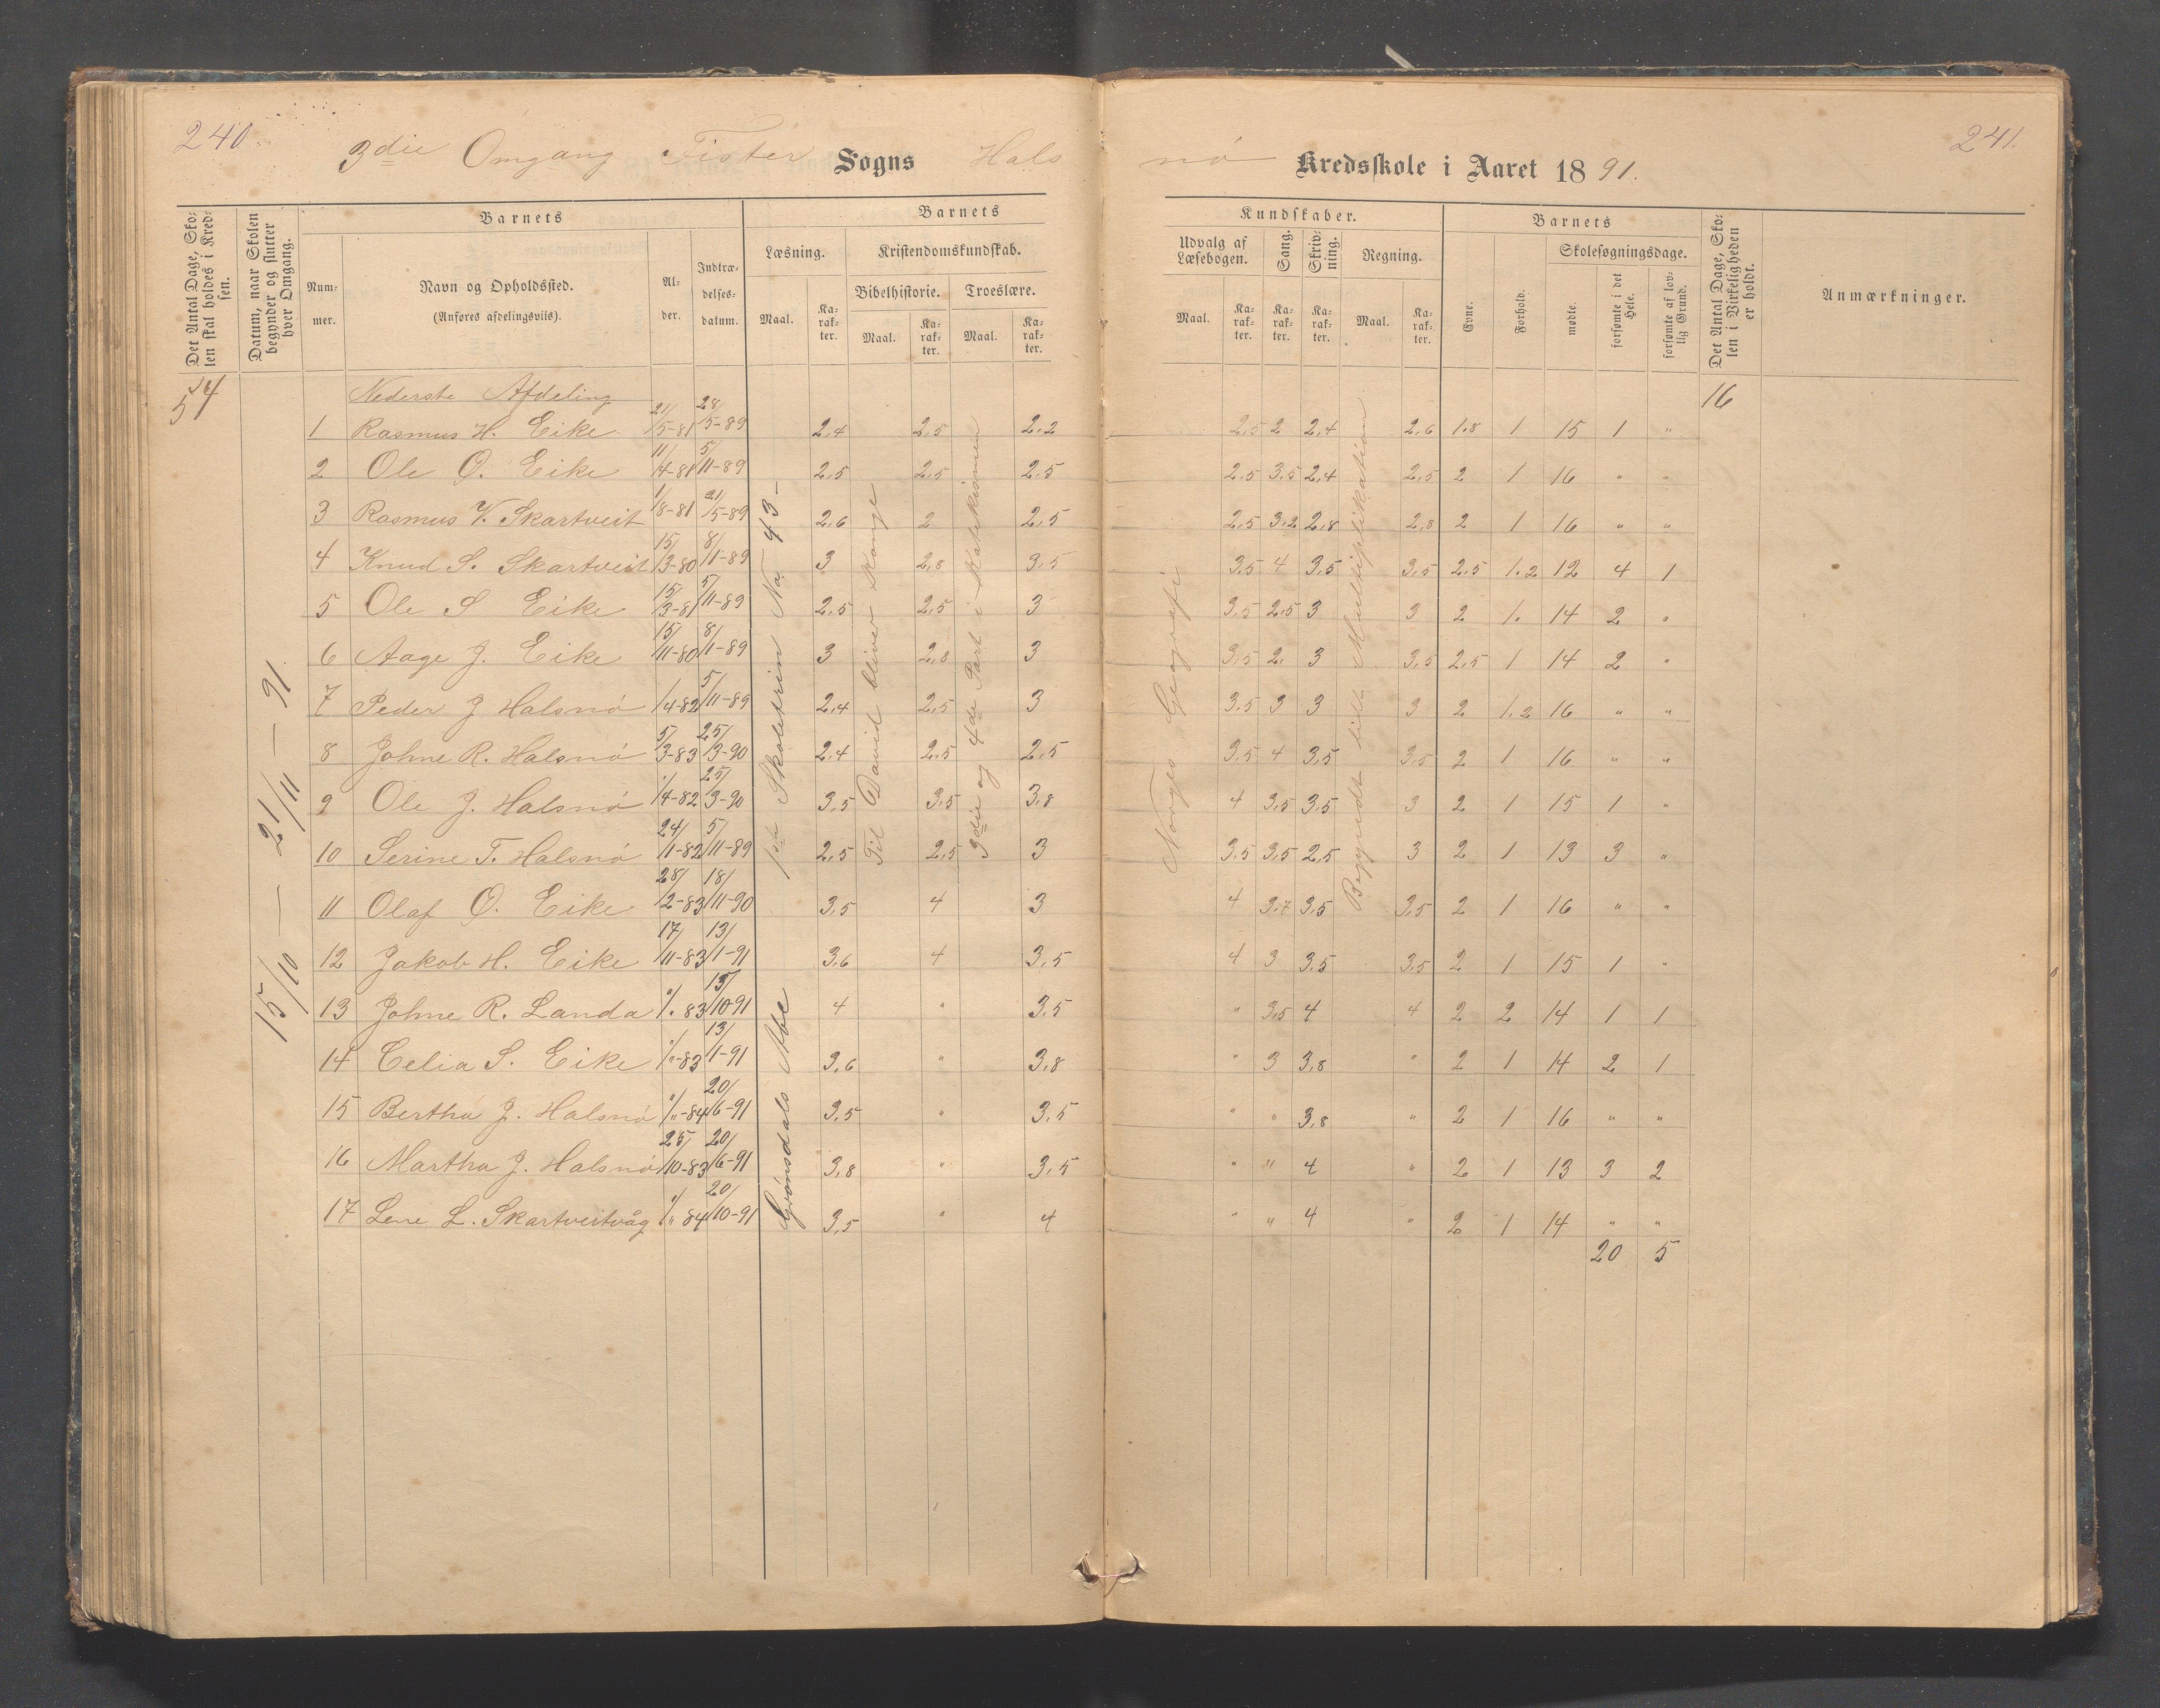 240. 241.
3die Omgang Fister Sogns Halsnö Kredsskole i Aaret 1891.
Det Antal Dage, Skolen skal holdes i Kredsen.
Datum, naar Skolen begynder og slutter hver Omgang.
Barnets
Nummer.
Navn og Opholdssted.
(Anføres afdelingsvils).
Alder.
Indtrædelsesdatum.
Barnets Kundskaber.
Læsning. Maal. Karakter.
Kristendomskundskab.
Bibelhistorie. Maal. Karakter.
Troeslære. Maal. Karakter.
Udvalg af Læsebogen. Maal. Karakter.
Sang. Karakter.
Skrivning. Karakter.
Regning. Maal. Karakter.
Barnets
Evne. Forhold.
Skolesøgningsdage.
mødte. forsømte i det Hele. forsømte af lovlig Grund.
Det Antal Dage, Skolen i Virkeligheden er holdt.
Anmærkninger.
54 Nederste Afdeling 16
15/10 — 21/11 — 91.
1ste Skoletrin No 43 –
Grønsdals Abc
Til David bliver Konge
3die og 4de Part i Katekismen
Norges Geografi
Begyndt lidt Multiplikation
1 Rasmus H. Eike 21/5-81 28/5-89 2,4 2,5 2,2 2,5 2 2,4 2,6 1.8 1 15 1 "
2 Ole O. Eike 11/4-81 5/11-89 2,5 2,5 2,5 2,5 3,5 2,4 2,5 2 1 16 " "
3 Rasmus V. Skartveit 1/8-81 21/5-89 2,6 2 2,5 2,5 3,2 2,8 2,8 2 1 16 " "
4 Knud S. Skartveit 15/3-80 8/11-89 3 2,8 3,5 3,5 4 3,5 3,5 2,5 1.2 12 4 1
5 Ole S Eike 15/3-81 5/11-89 2,5 2,5 3 3,5 2,5 3 3 2 1. 14 2 "
6 Aage J. Eike 15/11-80 8/11-89 3 2,8 3 3,5 2. 3 3,5 2,5 1 14 2 "
7 Peder J Halsnö /4-82 5/11-89 2,4 2,5 3 3,5 3 3 3 2 1.2 16 " "
8 Johne R. Halsnö 5/3-83 25/3-90 2,4 2,5 2,5 3,5 4 3,5 3,5 2 1 16 " "
9 Ole J. Halsnö /4-82 25/3-90 3,5 3,5 3,8 4 3,5 3,5 3 2 1 15 1 "
10 Serine T. Halsnö 24/11-82 5/11-89 2,5 2,5 3 3,5 3,5 2,5 3 2 1 13 3 "
11 Olaf O. Eike 28/2-83 18/11-90 3,5 4 3 4 3,7 3,5 3,5 2 1 16 " "
12 Jakob H. Eike 17/11-83 13/1-91 3,6 4 3,5 4 3 3,5 3,5 2 1 15 1 "
13 Johne R. Landa "/" 83 15/10-91 4 " 3,5 " 3,5 4 4 2 2 14 1 1
14 Celia S. Eike "/"-83 13/1-91 3,6 " 3,8 " 3 3,8 " 2 1 14 2 1
15 Bertha J. Halsnö "/"-84 20/6-91 3,5 " 3,5 " " 3,8 " 2 1 16 " "
16 Martha J. Halsnö 25/10-83 20/6-91 3,8 " 3,5 " " 4 " 2 1 13 3 2
17 Lene L. Skartveitvåg "/" 84 20/10-91 3,5 " 4 " " 4 " 2 1 14 " "
20 5